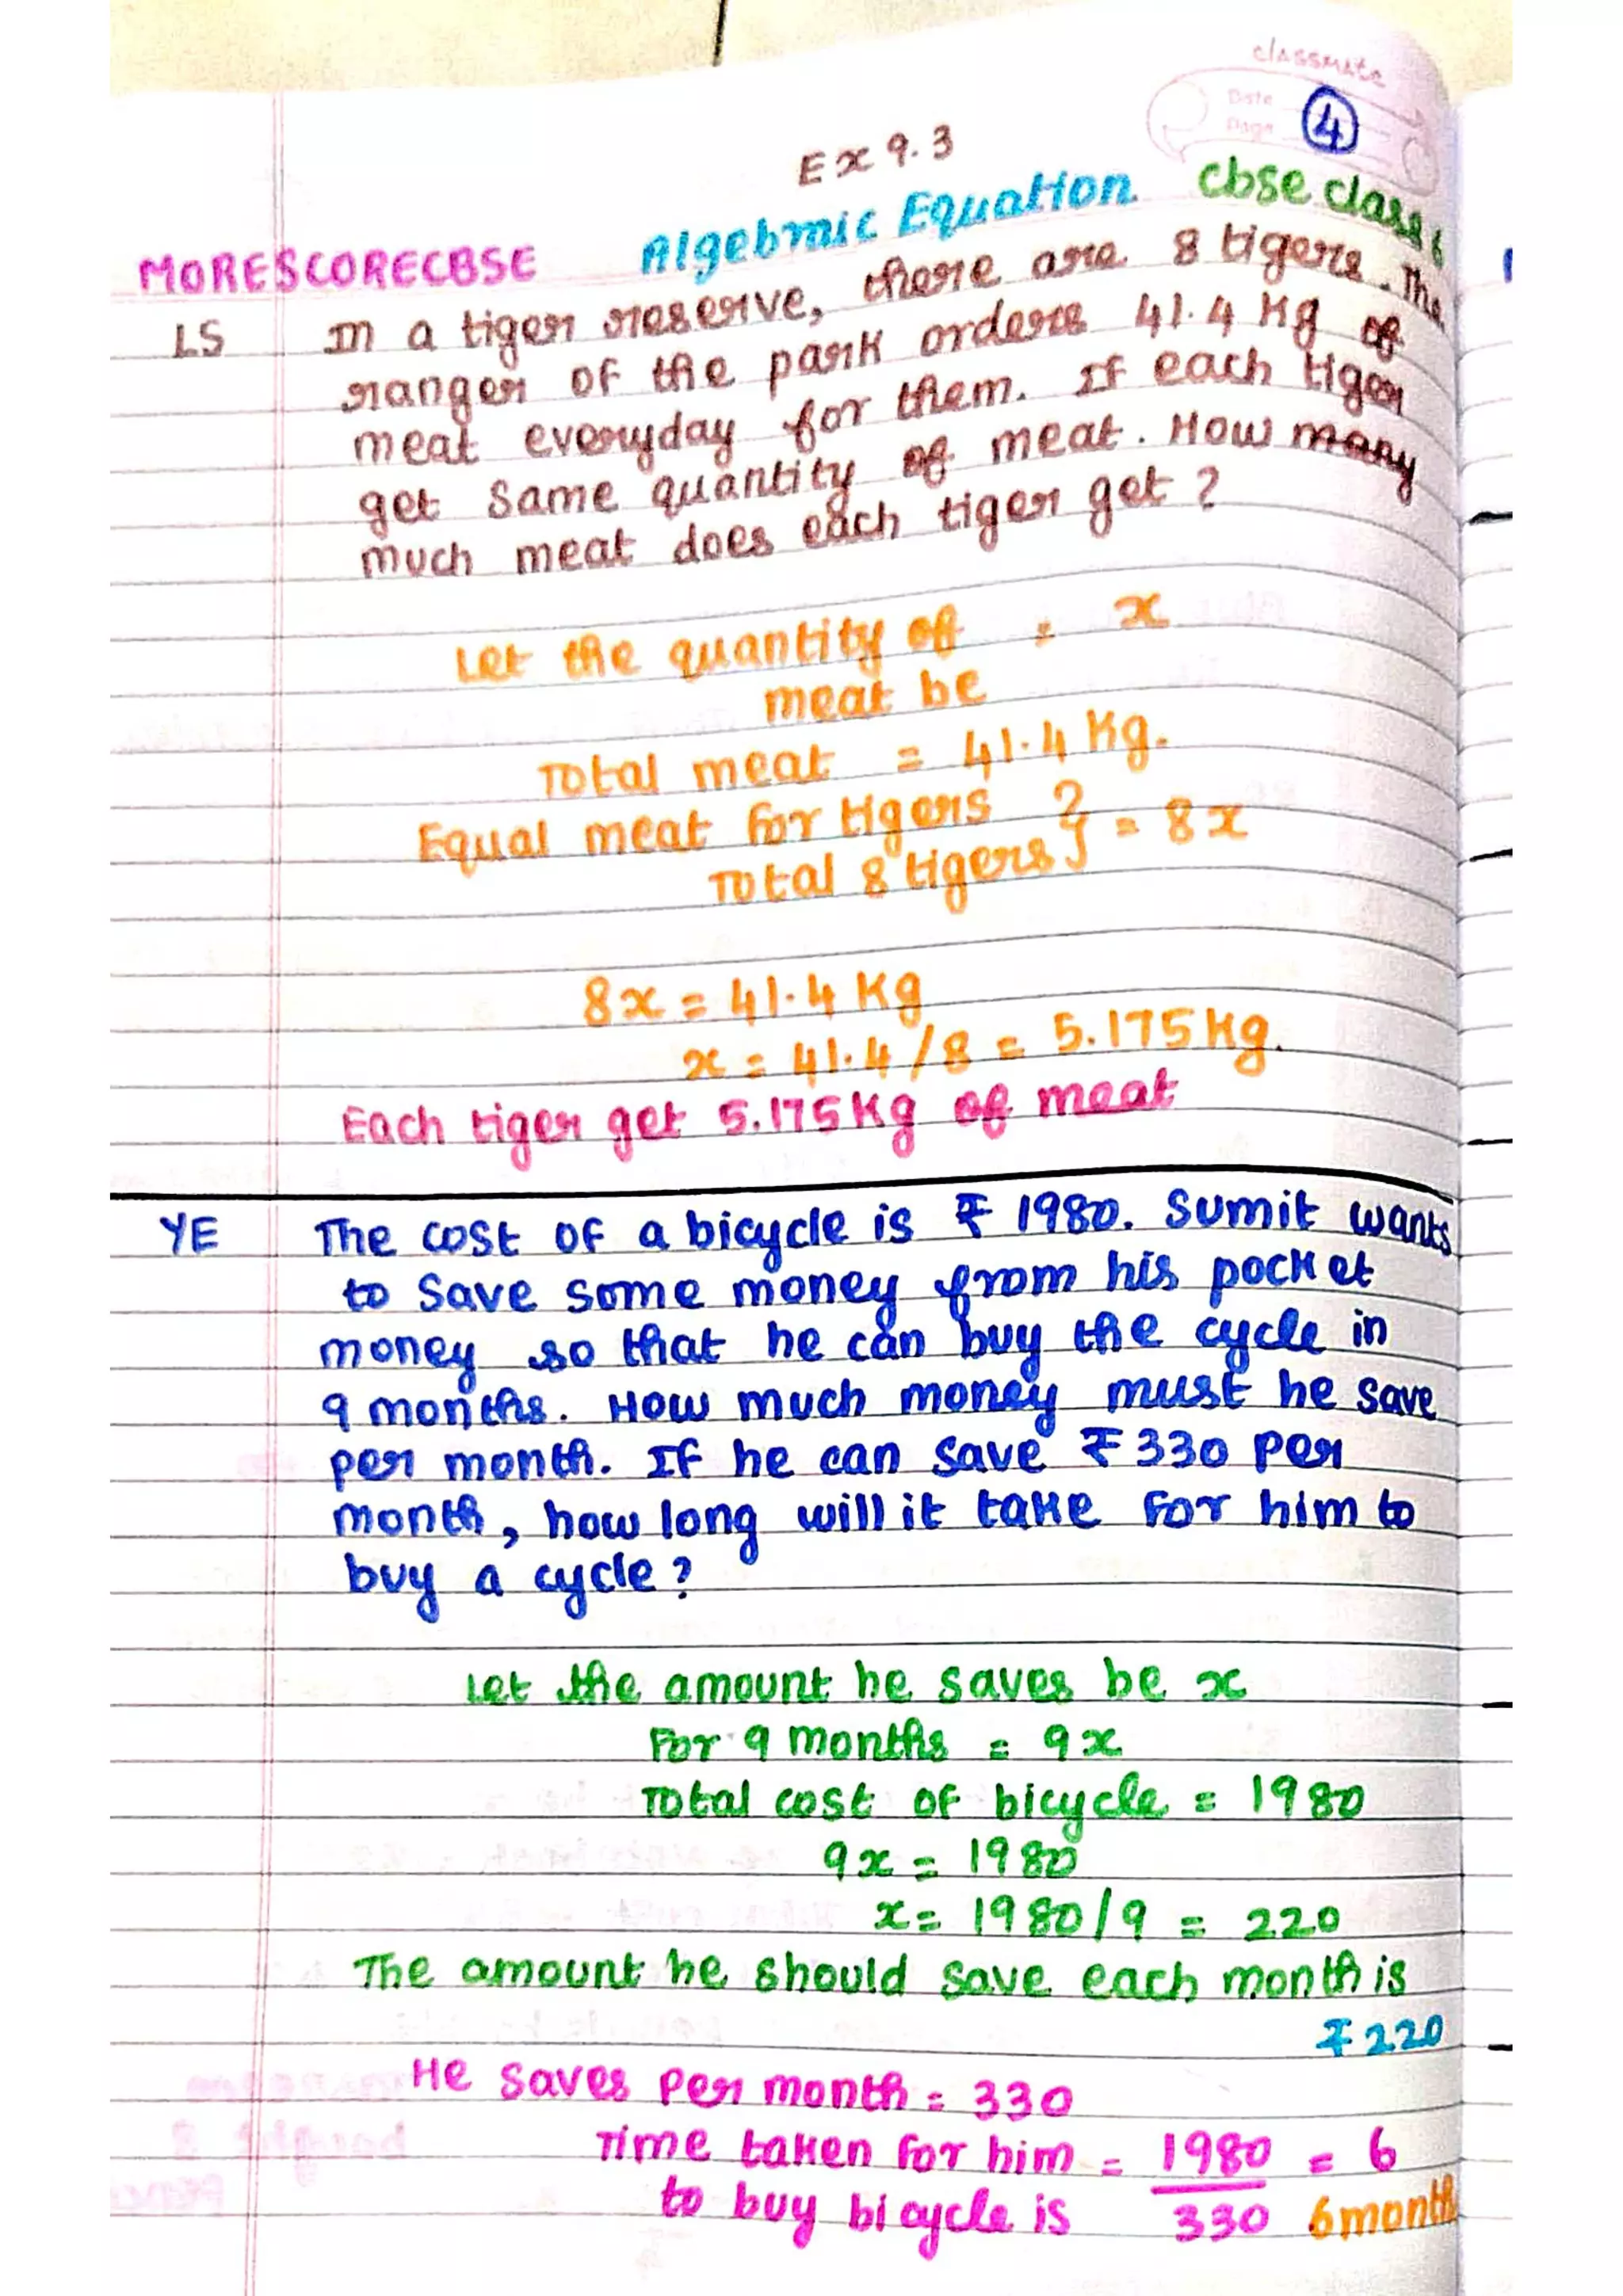 classmate
Date
Page
4
Ex 9.3
MORESCORECBSE Algebraic Equation cbse class 6
LS In a tiger reserve, there are 8 tigers. The
ranger of the park orders 41.4 Kg of
meat everyday for them. If each tiger
get same quantity of meat. How many
much meat does each tiger get?
Let the quantity of = x
meat be
Total meat = 41.4 Kg.
Equal meat for tigers } = 8x
Total 8 tigers
8x = 41.4 Kg
x = 41.4/8 = 5.175 Kg.
Each tiger get 5.175 Kg of meat
YE The cost of a bicycle is ₹ 1980. Sumit wants
to save some money from his pocket
money so that he can buy the cycle in
9 months. How much money must he save
per month. If he can save ₹ 330 per
month, how long will it take for him to
buy a cycle?
Let the amount he saves be x
For 9 months = 9x
Total cost of bicycle = 1980
9x = 1980
x = 1980/9 = 220
The amount he should save each month is
₹ 220
He saves per month = 330
Time taken for him = 1980 = 6
to buy bicycle is 330 6 month